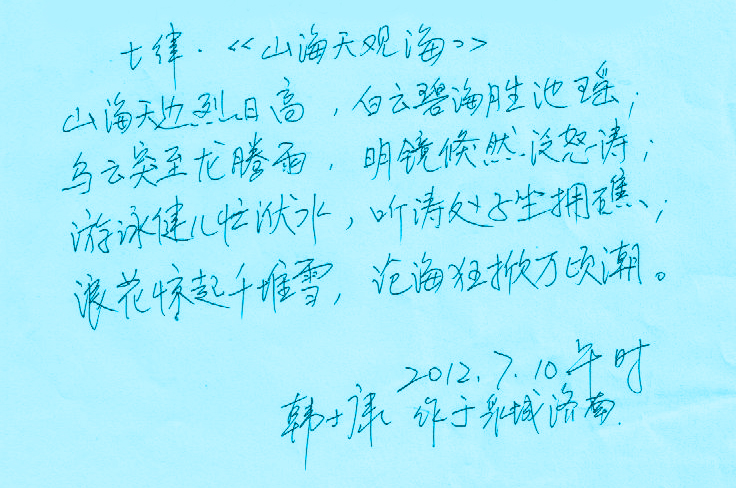 七律·《山海天观海》
山海天边烈日高，白云碧海胜池瑶；
乌云突至龙腾雨，明镜倏然泛怒涛；
游泳健儿忙洑水，听涛处子坐拥礁；
浪花惊起千堆雪，沧海狂掀万顷潮。
2012.7.10午时
韩士康 作于泉城济南.